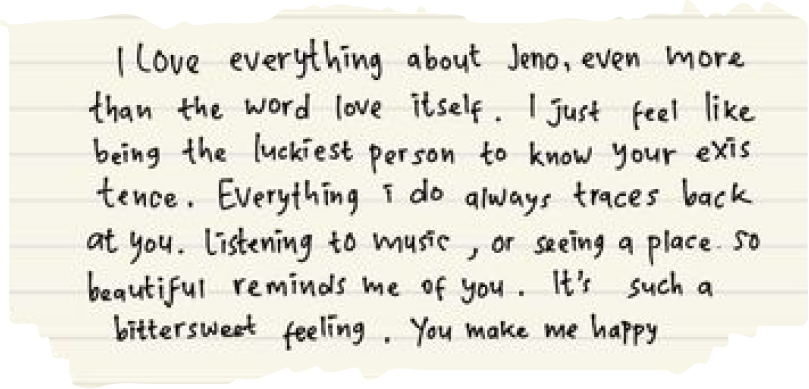 I love everything about Jeno, even more
than the word love itself. I just feel like
being the luckiest person to know your exis
tence. Everything i do always traces back
at you. listening to music, or seeing a place so
beautiful reminds me of you. It's such a
bittersweet feeling. You make me happy